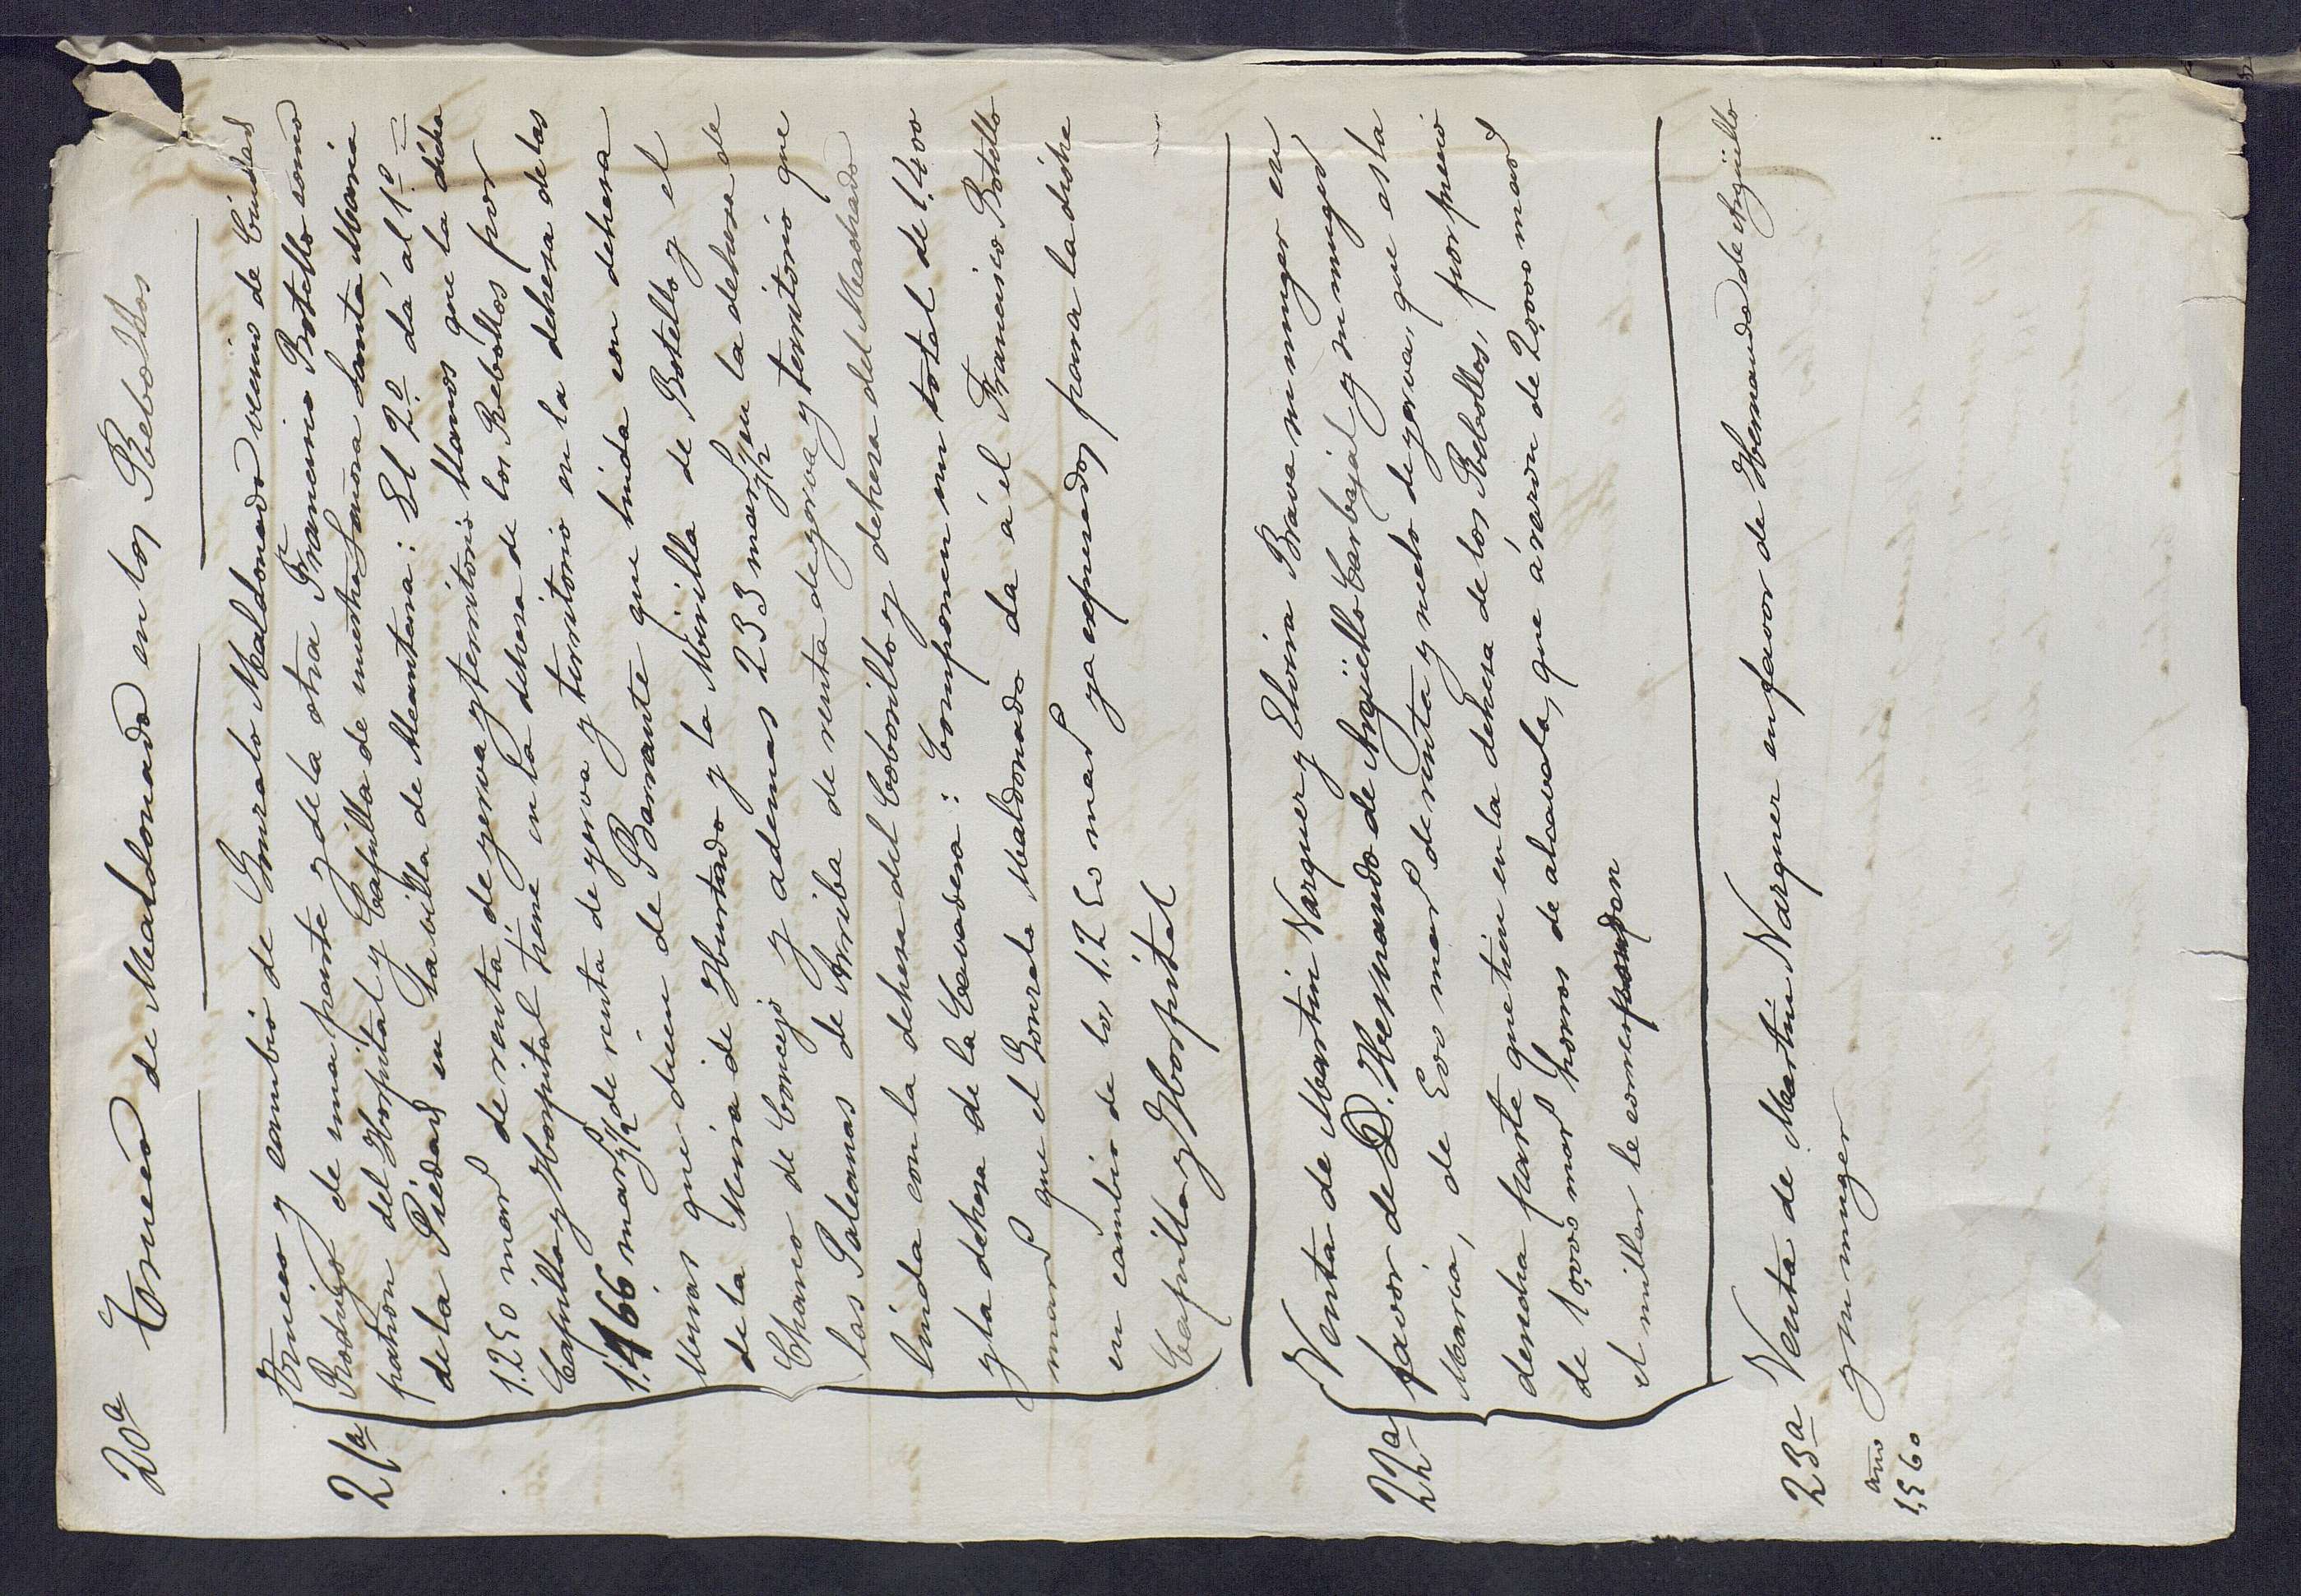 20ª Trueco de Maldonado en los Rebollos
Trueco y cambio de Gonzalo Maldonado vecino de Ciudad
21ª Rodrigo de una parte y de la otra Franco Francisco Botello como
patron del Hospital y Capilla de nuestra Señora Santa Maria
de la Piedad en la villa de Alcantara: El 2º dá al 1º =
1.250 mars de renta de yerva y territorio llanos que la dicha
Capilla y Hospital tiene en la dehesa de los Rebollos por
1.166 mars y 1/2 de renta de yerva y territorio en la dehesa de las
Minas que dicen de Barrante que linda con dehesa
de la Mina de Hurtado y la Minilla de Botello y el
Charco de Concejo y ademas 233 mars y 1/2 en la dehesa de
las Paleonas de Arriba de renta de yerva y territorio que
linda con la dehesa del Cotorrillo y dehesa del Machado
y la dehesa de la Cevadera: Componen un total de 1.400
mars que el Gonzalo Maldonado da á el Francisco Botello
en cambio de los 1.250 mars ya espresados para la dicha
Capilla y Hospital
22ª Venta de Martin Vazquez y Elvira Brava su muger en
favor de D. Hernando de Argüello Carbajal y su muger
Maria, de 500 mars de renta y suelo de yerva, que esta
derecha parte que tiene en la dehesa de los Rebollos, por precio
de 10,000 mars horros de alcavala, que á razon de 20,000 mars
el millar le corresponden
23ª Venta de Martin Vazquez en favor de Hernando de Argüello
año y su muger
1,560